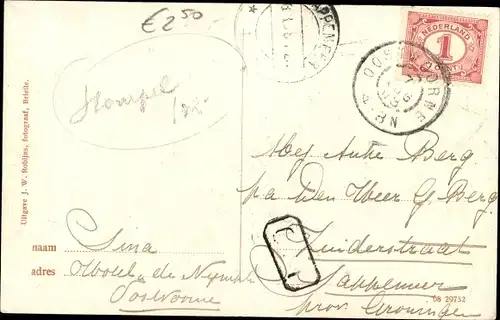 € 2 50
Stempel
NEDERLAND
1
CENT
OOSTVOORNE
SAPPEMEER
Uitgave J. W. Robijns, fotograaf, Brielle.
Mej Anke Berg
p/a Den Heer G. Berg
Zuiderstraat
Sappemeer
prov. Groningen
naam Sina
adres Hotel de Nymph
Oostvoorne
08 29752